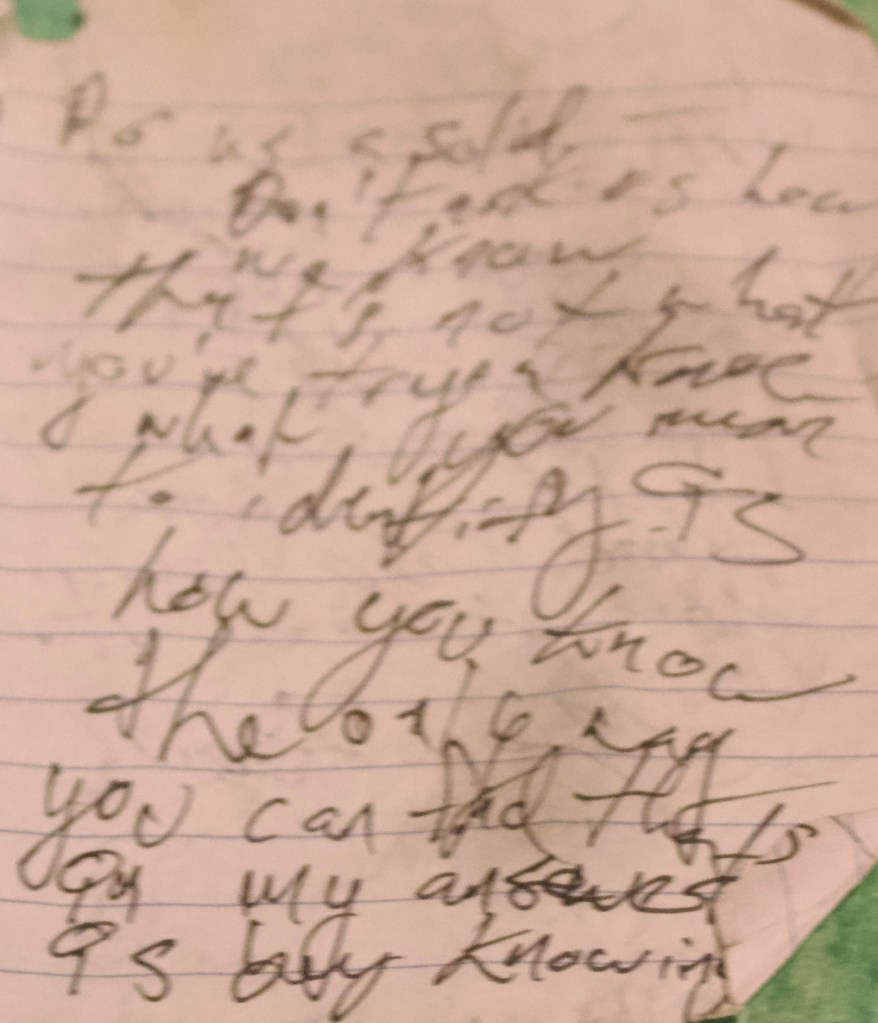 us a solid
Don't ask us how
we know
that's not what
you're tryen know
what you mean
to identify is
how you know
the only way
you can find that's
my answers
is buy knowing